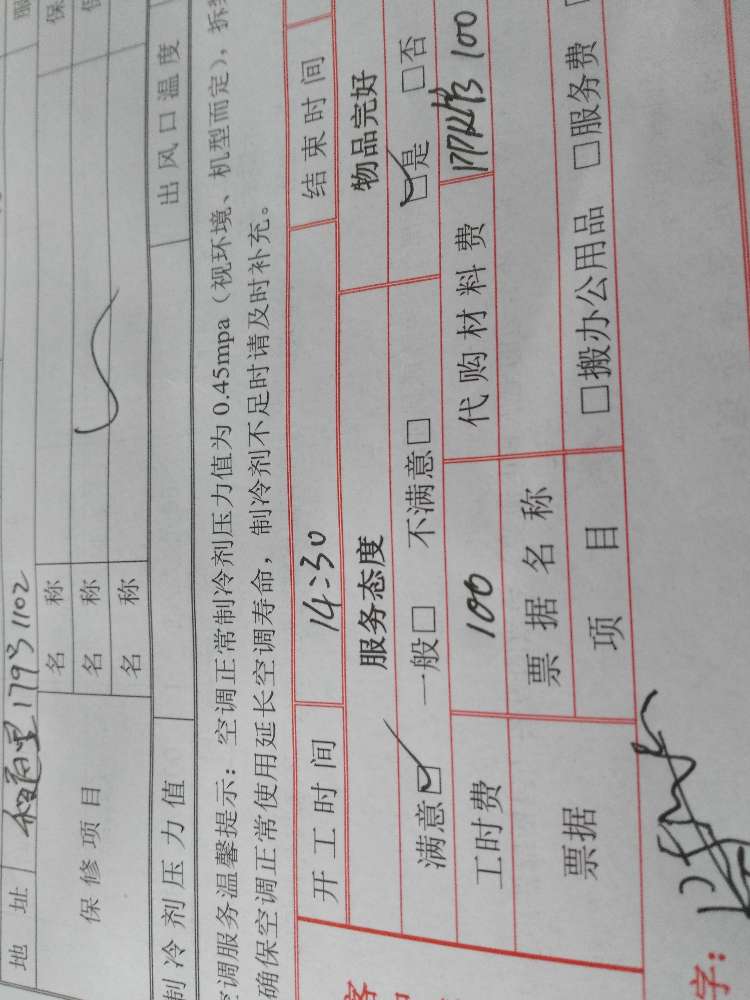 地址 179号1102
保修项目 名称
名称
名称
制冷剂压力值 出风口温度
空调服务温馨提示：空调正常制冷剂压力值为0.45mpa（视环境、机型而定），拆
确保空调正常使用延长空调寿命，制冷剂不足时请及时补充。
开工时间 14:30 结束时间
服务态度 物品完好
满意☑ 一般□ 不满意□ ☑是 □否
工时费 100 代购材料费 100
票据 票据名称
项目 □搬办公用品 □服务费
字：